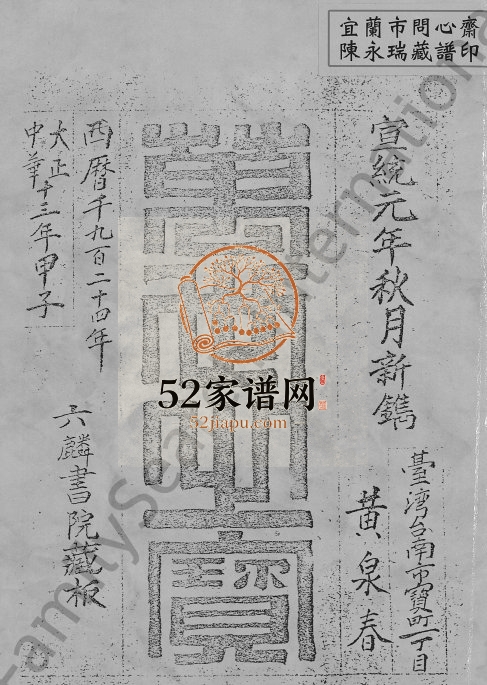 宜蘭市問心齋
陳永瑞藏譜印
宣統元年秋月新鐫
臺湾台南市寶町一丁目
黄泉春
西曆千九百二十四年
大正
中華十三年甲子
六麟書院藏板
52家谱网
52jiapu.com
FamilySearch International